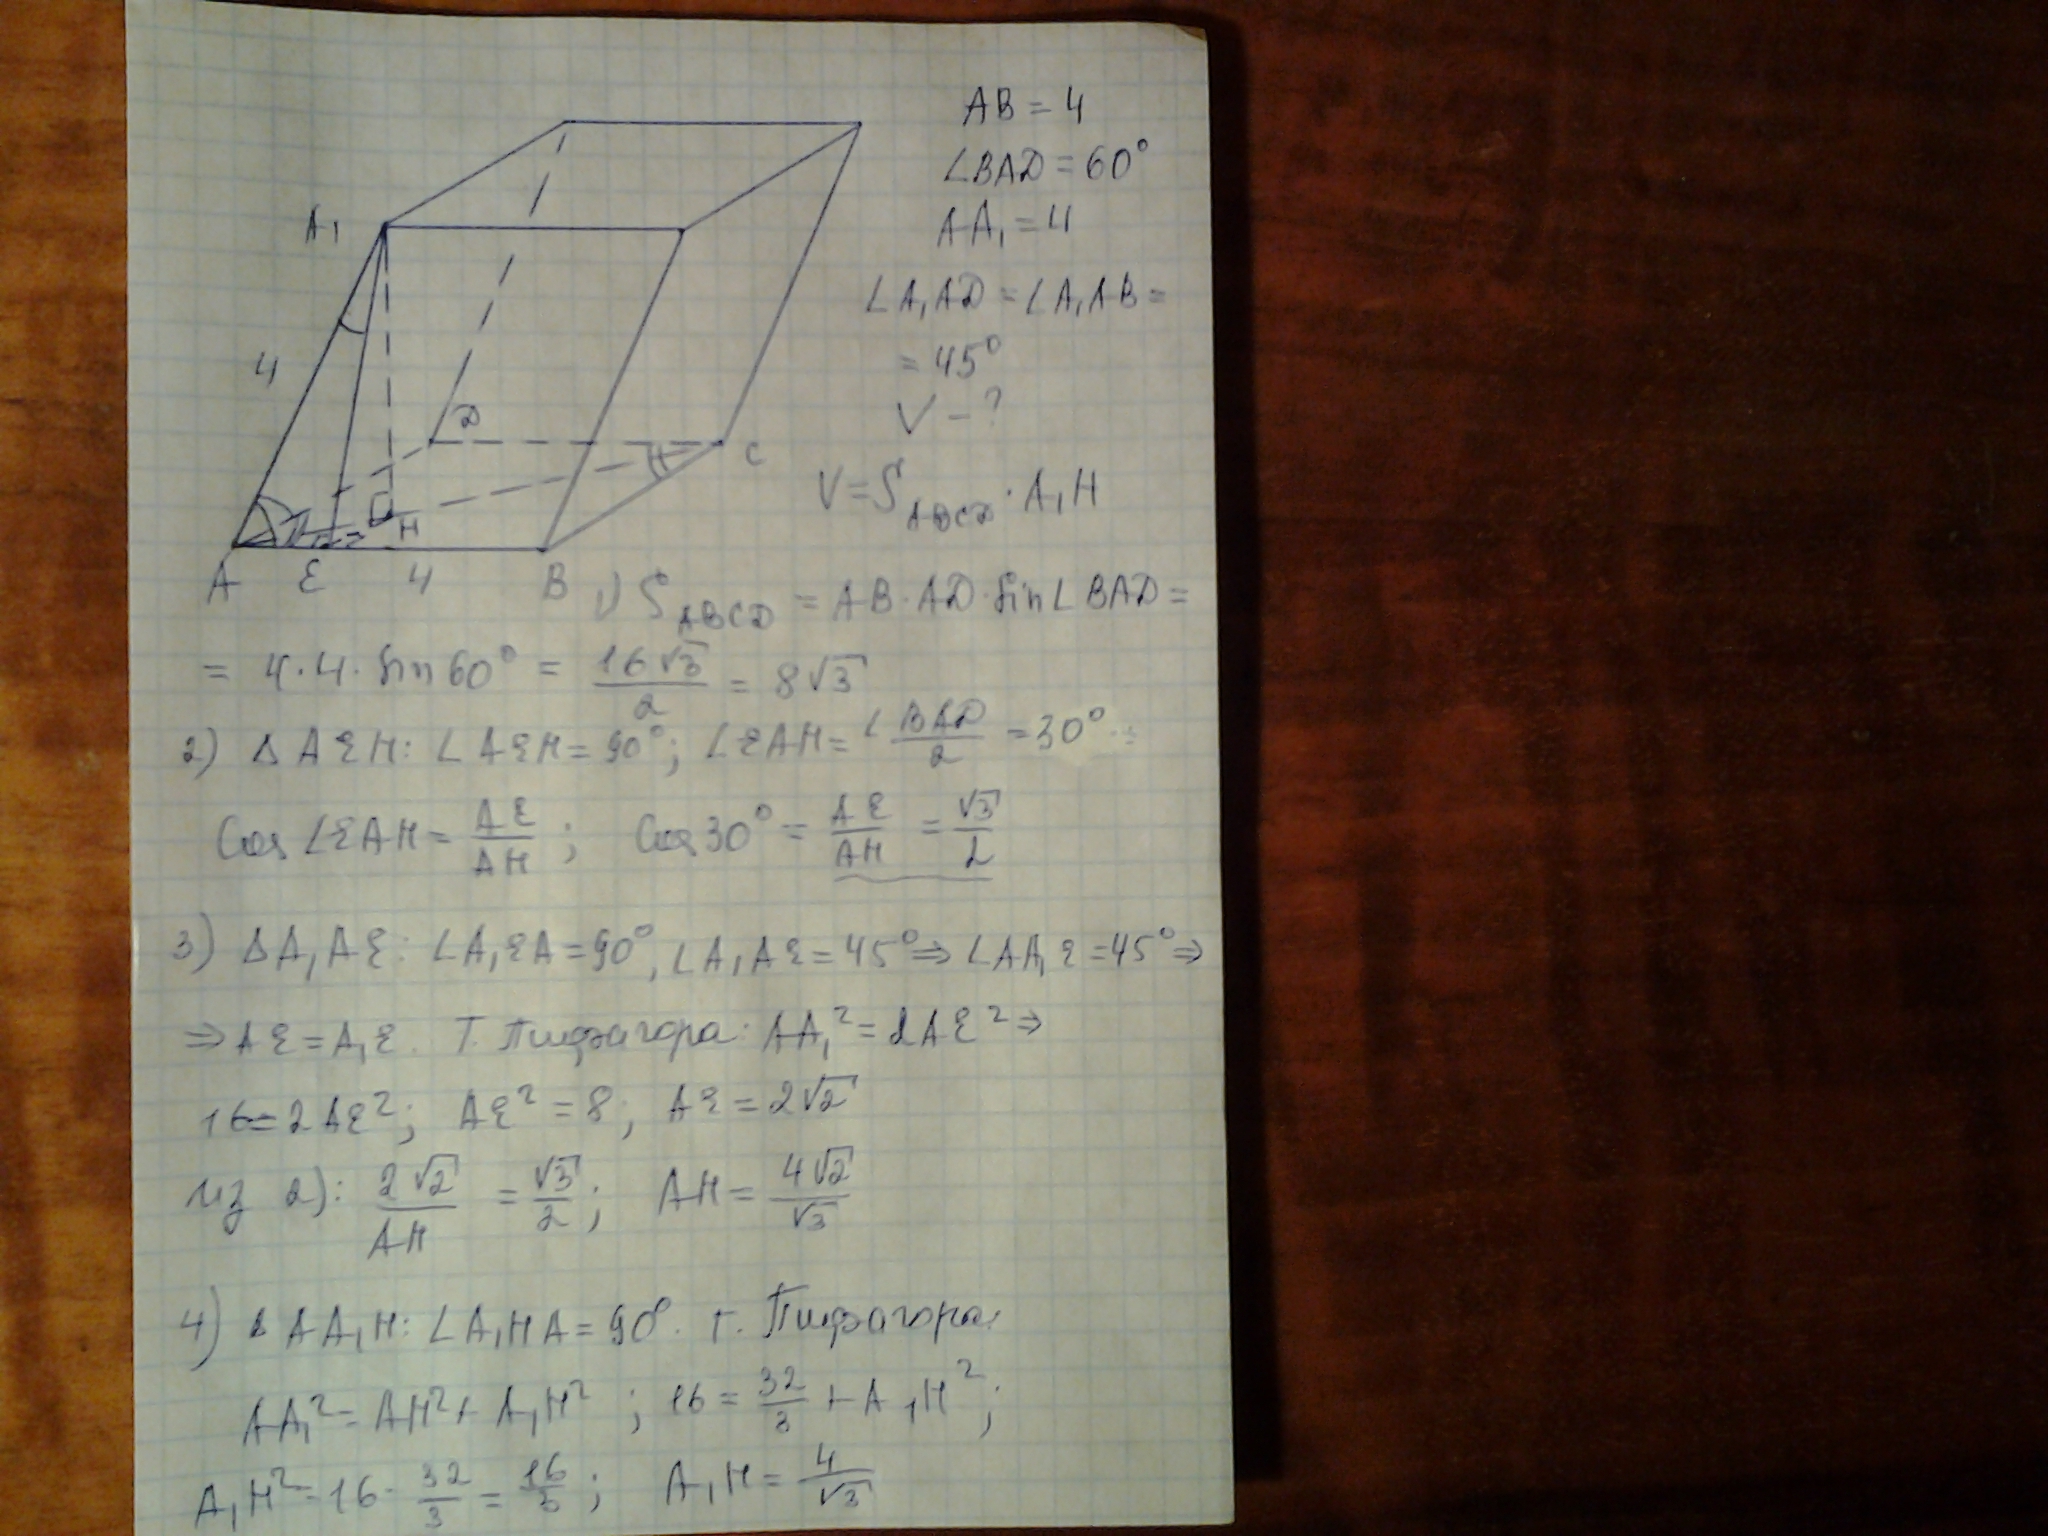 AB = 4
∠BAD = 60°
AA₁ = 4
∠A₁AD = ∠A₁AB =
= 45°
V - ?
V = S_ABCD · A₁H
A₁
4
D
C
H
A E 4 B
1) S_ABCD = AB · AD · sin∠BAD =
= 4 · 4 · sin60° = 16√3/2 = 8√3
2) △AEH: ∠AEH = 90°; ∠EAH = ∠BAD/2 = 30°
Cos∠EAH = AE/AH; Cos30° = AE/AH = √3/2
3) △A₁AE: ∠A₁EA = 90°, ∠A₁AE = 45° ⇒ ∠AA₁E = 45° ⇒
⇒ AE = A₁E. Т. Пифагора: AA₁² = 2AE² ⇒
16 = 2AE²; AE² = 8; AE = 2√2
Из 2): 2√2/AH = √3/2; AH = 4√2/√3
4) △AA₁H: ∠A₁HA = 90°. т. Пифагора:
AA₁² = AH² + A₁H²; 16 = 32/3 + A₁H²;
A₁H² = 16 - 32/3 = 16/3; A₁H = 4/√3